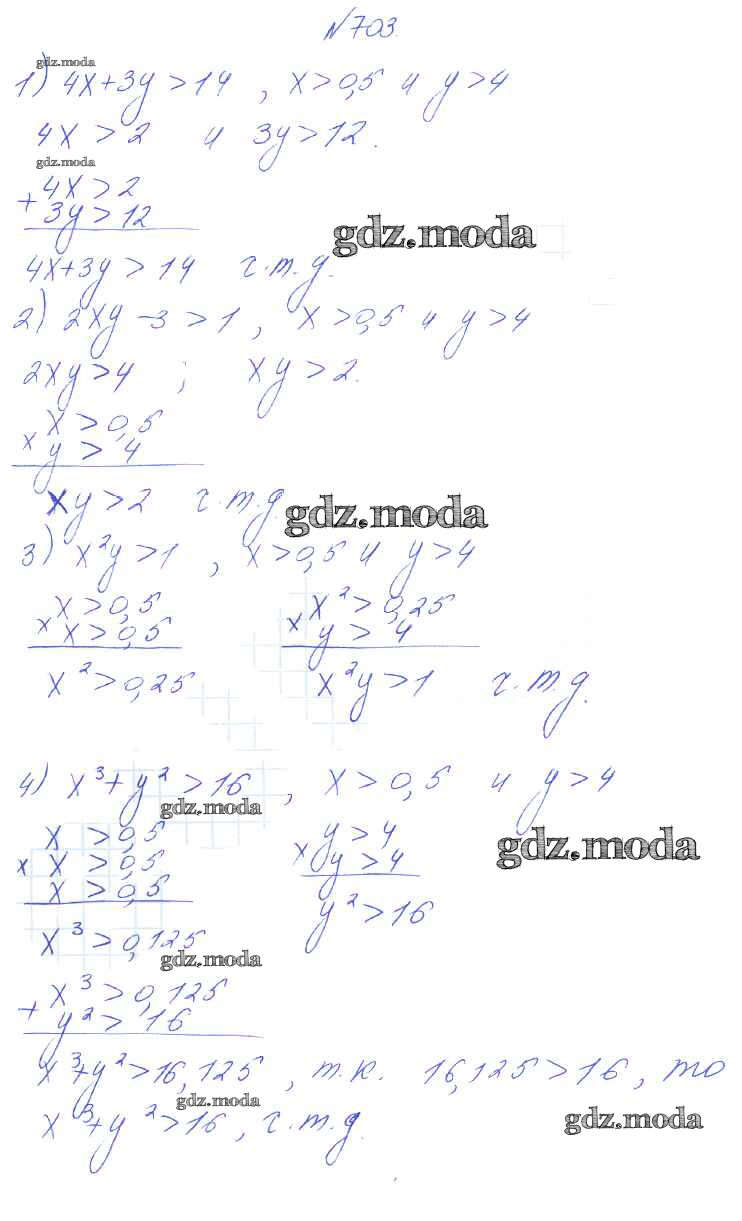 №703.
gdz.moda
1) 4x+3y>14, x>0,5 и y>4
4x>2 и 3y>12.
gdz.moda
+ 4x>2
3y>12
gdz.moda
4x+3y>14 ч.т.д.
2) 2xy-3>1, x>0,5 и y>4
2xy>4; xy>2.
x x>0,5
y>4
xy>2 ч.т.д.
gdz.moda
3) x²y>1, x>0,5 и y>4
x x>0,5 x x²>0,25
x>0,5 y>4
x²>0,25 x²y>1 ч.т.д.
4) x³+y²>16, x>0,5 и y>4
gdz.moda
x>0,5 x y>4
x x>0,5 y>4
gdz.moda
x>0,5
y²>16
x³>0,125
gdz.moda
+ x³>0,125
y²>16
x³+y²>16,125, т.к. 16,125>16, то
gdz.moda
x³+y²>16, ч.т.д.
gdz.moda